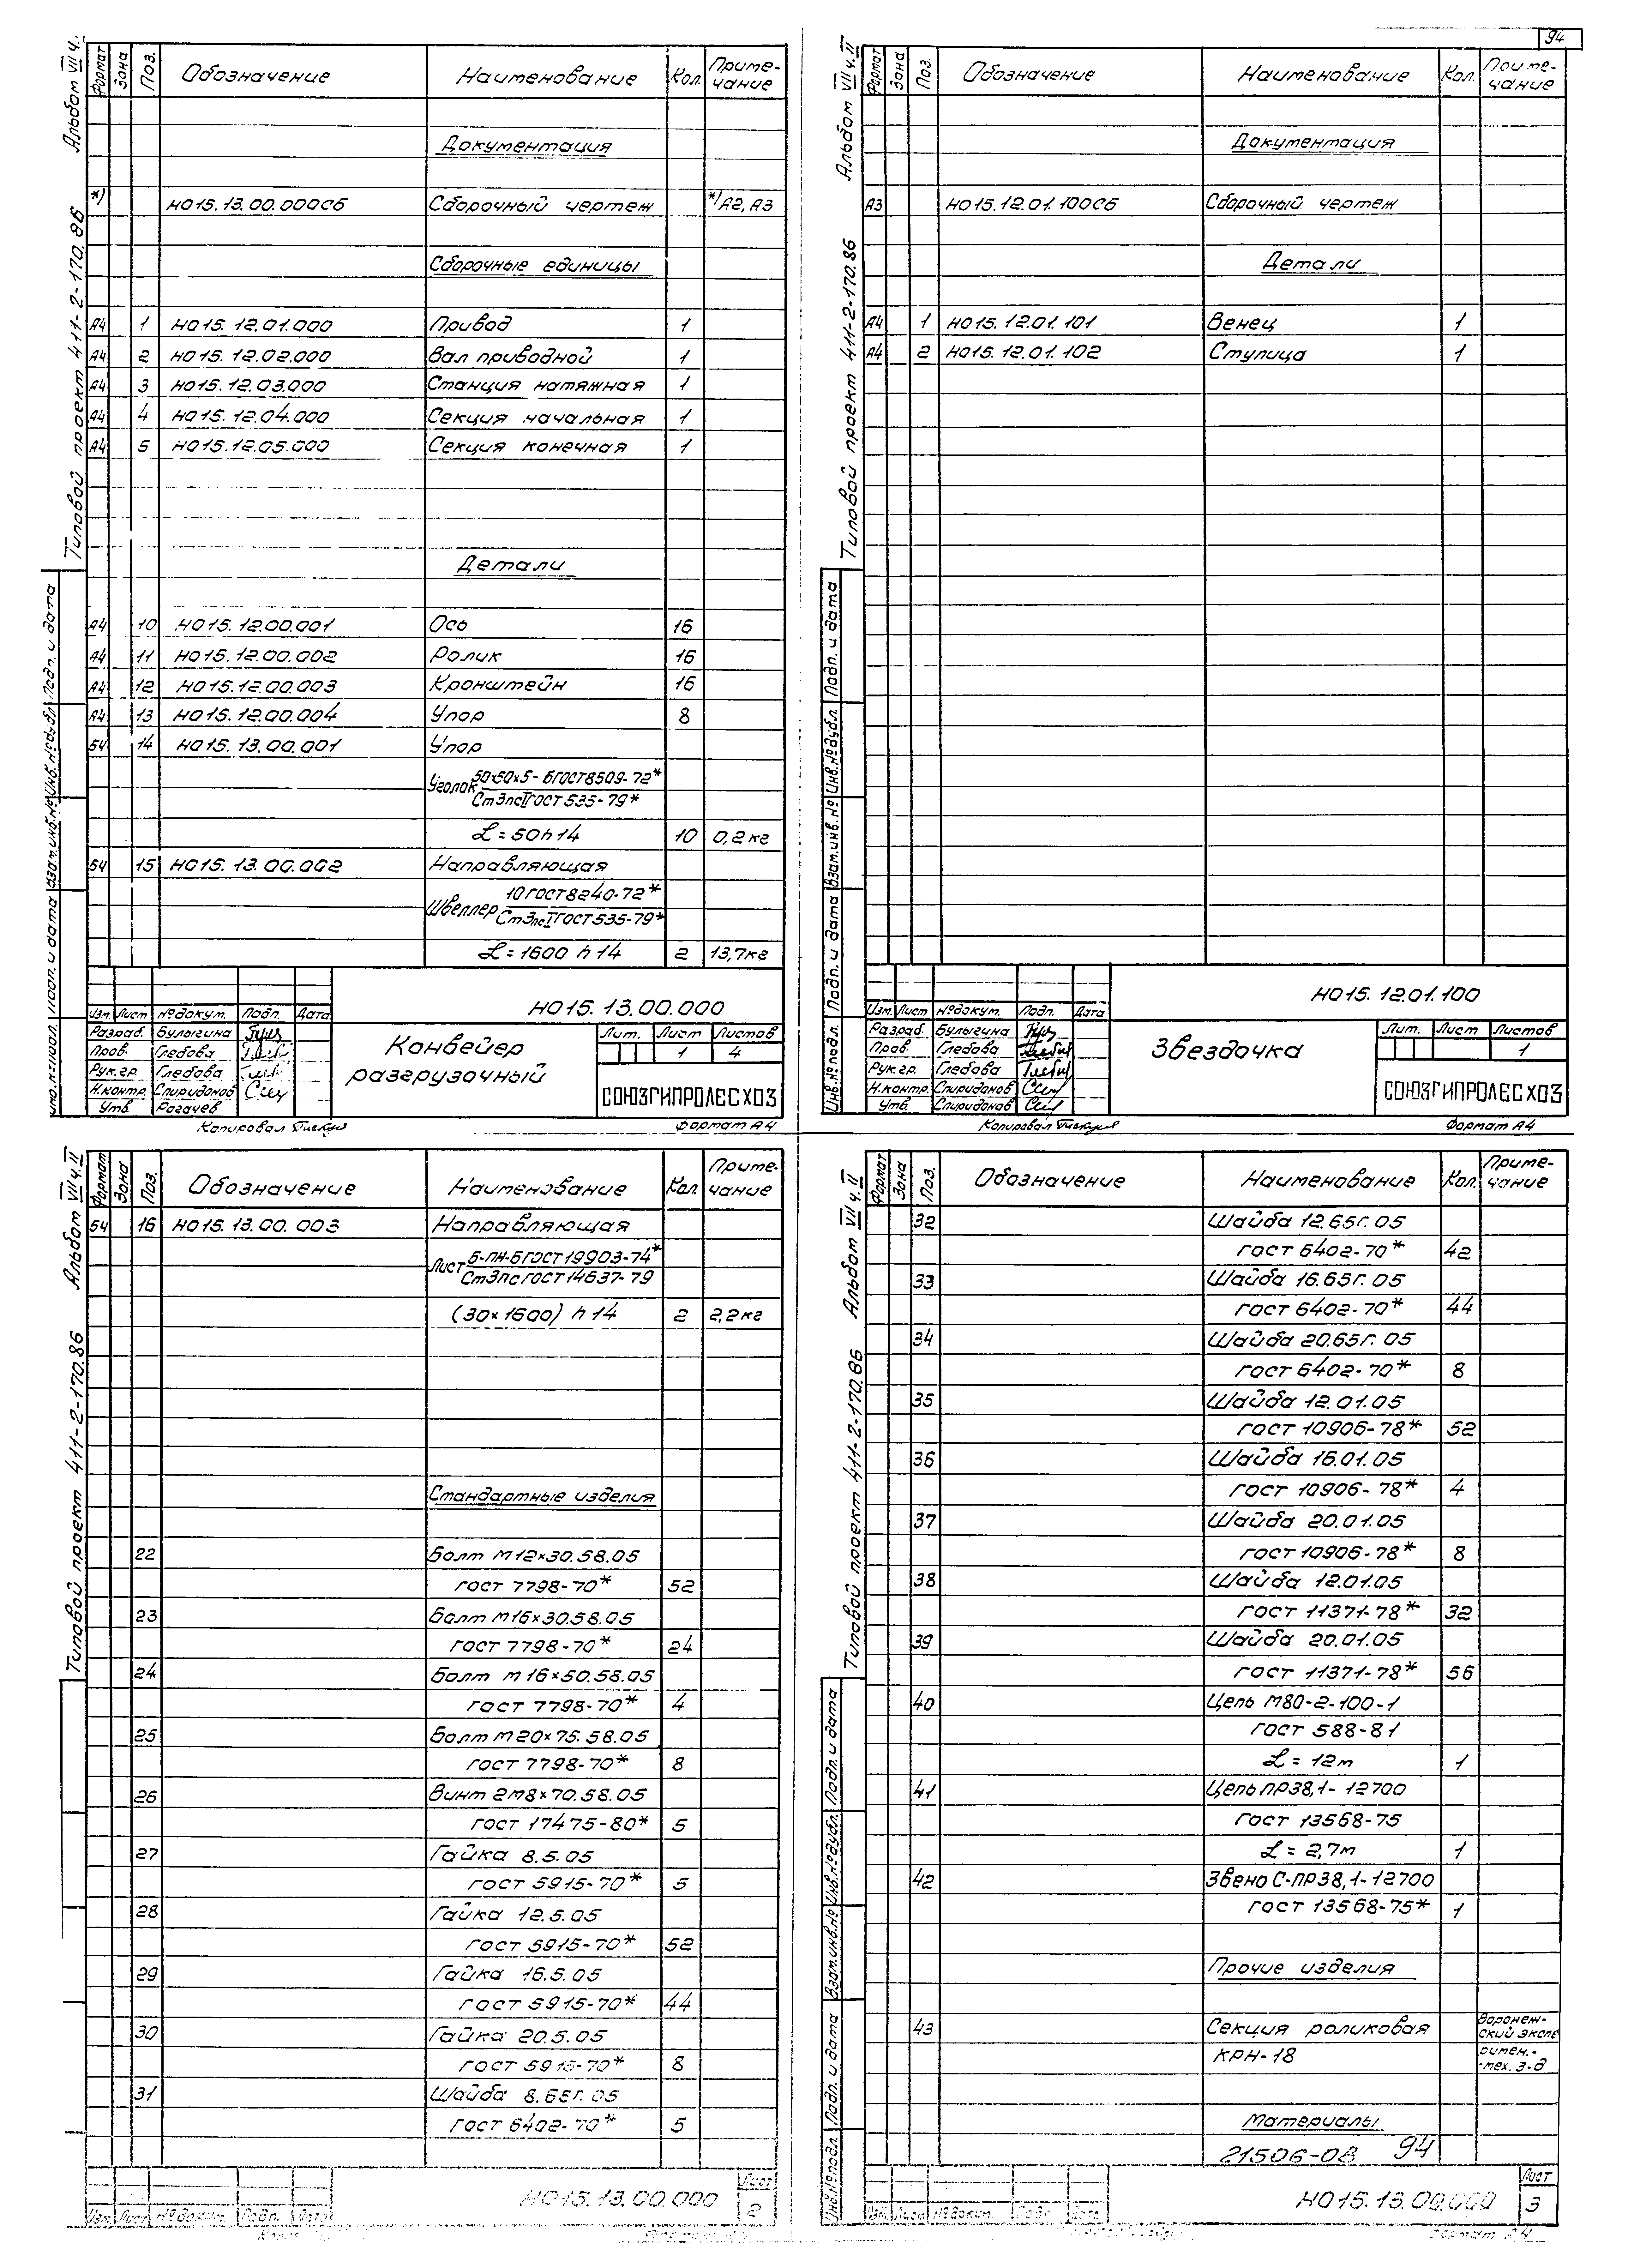 94
Альбом VII ч.
Типовой проект 411-2-170.86
Формат Зона Поз. Обозначение Наименование Кол. Примечание
Документация
*) НО15.13.00.000СБ Сборочный чертеж *) А2, А3
Сборочные единицы
А4 1 НО15.12.01.000 Привод 1
А4 2 НО15.12.02.000 Вал приводной 1
А4 3 НО15.12.03.000 Станция натяжная 1
А4 4 НО15.12.04.000 Секция начальная 1
А4 5 НО15.12.05.000 Секция конечная 1
Детали
А4 10 НО15.12.00.001 Ось 16
А4 11 НО15.12.00.002 Ролик 16
А4 12 НО15.12.00.003 Кронштейн 16
А4 13 НО15.12.00.004 Упор 8
БЧ 14 НО15.13.00.001 Упор
Уголок 50х50х5-Б ГОСТ 8509-72*
Ст3псII ГОСТ 535-79*
L=50h14 10 0,2кг
БЧ 15 НО15.13.00.002 Направляющая
Швеллер 10 ГОСТ 8240-72*
Ст3псI ГОСТ 535-79*
L=1600 h14 2 13,7кг
Инв.№подл. Подп. и дата Взам.инв.№ Инв.№дубл. Подп. и дата
НО15.13.00.000
Изм. Лист №докум. Подп. Дата
Разраб. Булыгина
Пров. Глебова
Рук.гр. Глебова
Н.контр. Спиридонов
Утв. Рогачев
Конвейер
разгрузочный
Лит. Лист Листов
1 4
СОЮЗГИПРОЛЕСХОЗ
Копировал Формат А4
Альбом VII ч.II
Типовой проект 411-2-170.86
Формат Зона Поз. Обозначение Наименование Кол. Примечание
Документация
А3 НО15.12.01.100СБ Сборочный чертеж
Детали
А4 1 НО15.12.01.101 Венец 1
А4 2 НО15.12.01.102 Ступица 1
Инв.№подл. Подп. и дата Взам.инв.№ Инв.№дубл. Подп. и дата
НО15.12.01.100
Изм. Лист №докум. Подп. Дата
Разраб. Булыгина
Пров. Глебова
Рук.гр. Глебова
Н.контр. Спиридонов
Утв. Спиридонов
Звездочка
Лит. Лист Листов
1
СОЮЗГИПРОЛЕСХОЗ
Копировал Формат А4
Альбом VII ч.II
Типовой проект 411-2-170.86
Формат Зона Поз. Обозначение Наименование Кол. Примечание
БЧ 16 НО15.13.00.003 Направляющая
Лист Б-ПН-6 ГОСТ 19903-74*
Ст3пс ГОСТ 14637-79
(30×1600) h14 2 2,2кг
Стандартные изделия
22 Болт М12×30.58.05
ГОСТ 7798-70* 52
23 Болт М16×30.58.05
ГОСТ 7798-70* 24
24 Болт М16×50.58.05
ГОСТ 7798-70* 4
25 Болт М20×75.58.05
ГОСТ 7798-70* 8
26 Винт 2М8×70.58.05
ГОСТ 17475-80* 5
27 Гайка 8.5.05
ГОСТ 5915-70* 5
28 Гайка 12.5.05
ГОСТ 5915-70* 52
29 Гайка 16.5.05
ГОСТ 5915-70* 44
30 Гайка 20.5.05
ГОСТ 5915-70* 8
31 Шайба 8.65Г.05
ГОСТ 6402-70* 5
НО15.13.00.000
Изм. Лист №докум. Подп. Дата
Лист
2
Альбом VII ч.II
Типовой проект 411-2-170.86
Формат Зона Поз. Обозначение Наименование Кол. Примечание
32 Шайба 12.65Г.05
ГОСТ 6402-70* 42
33 Шайба 16.65Г.05
ГОСТ 6402-70* 44
34 Шайба 20.65Г.05
ГОСТ 6402-70* 8
35 Шайба 12.01.05
ГОСТ 10906-78* 52
36 Шайба 16.01.05
ГОСТ 10906-78* 4
37 Шайба 20.01.05
ГОСТ 10906-78* 8
38 Шайба 12.01.05
ГОСТ 11371-78* 32
39 Шайба 20.01.05
ГОСТ 11371-78* 56
40 Цепь М80-2-100-1
ГОСТ 588-81
L=12м 1
41 Цепь ПР38,1-12700
ГОСТ 13568-75
L=2,7м 1
42 Звено С-ПР38,1-12700
ГОСТ 13568-75* 1
Прочие изделия
43 Секция роликовая Воронеж-
ский экспе
КРН-18 римен.-
-мех. з-д
Материалы
21506-08 94
Инв.№подл. Подп. и дата Взам.инв.№ Инв.№дубл. Подп. и дата
НО15.13.00.000
Изм. Лист №докум. Подп. Дата
Лист
3
Формат А4